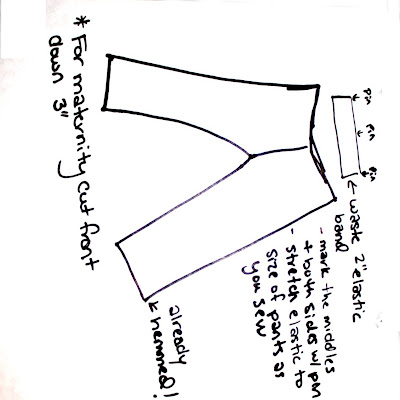 pin
pin
pin
← waste 2" elastic
band
- mark the middles
+ both sides w/ pin
- stretch elastic to
size of pants as
you sew
already
hemmed!
* For maternity cut front
down 3"